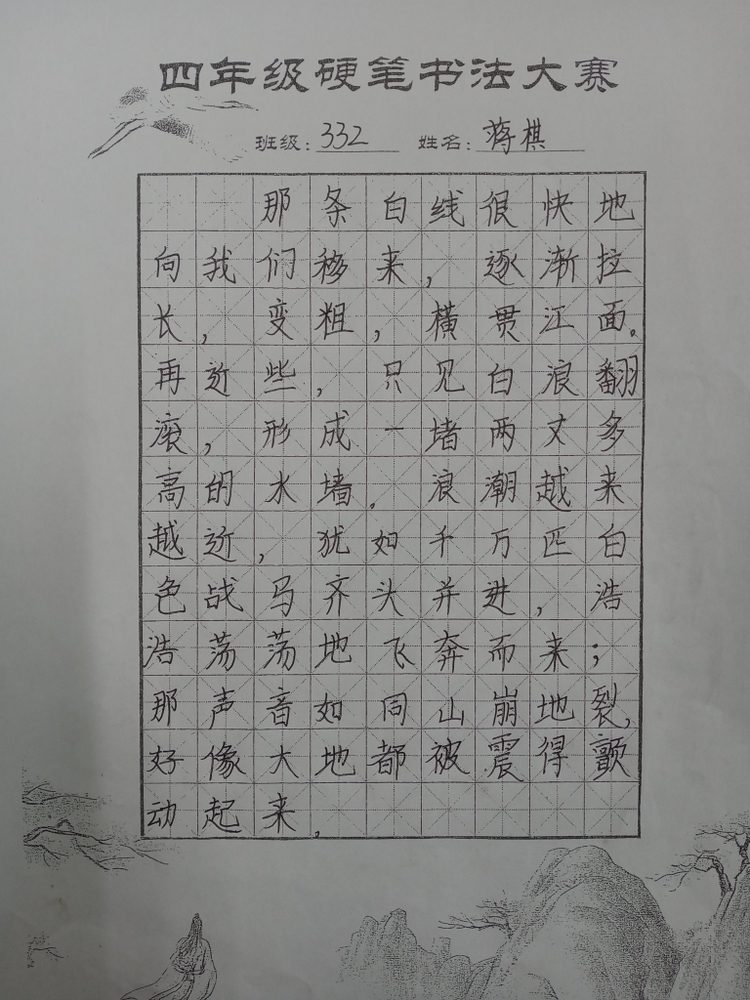 四年级硬笔书法大赛
班级：332 姓名：蒋棋
那条白线很快地
向我们移来，逐渐拉
长，变粗，横贯江面。
再近些，只见白浪翻
滚，形成一堵两丈多
高的水墙。浪潮越来
越近，犹如千万匹白
色战马齐头并进，浩
浩荡荡地飞奔而来；
那声音如同山崩地裂，
好像大地都被震得颤
动起来，